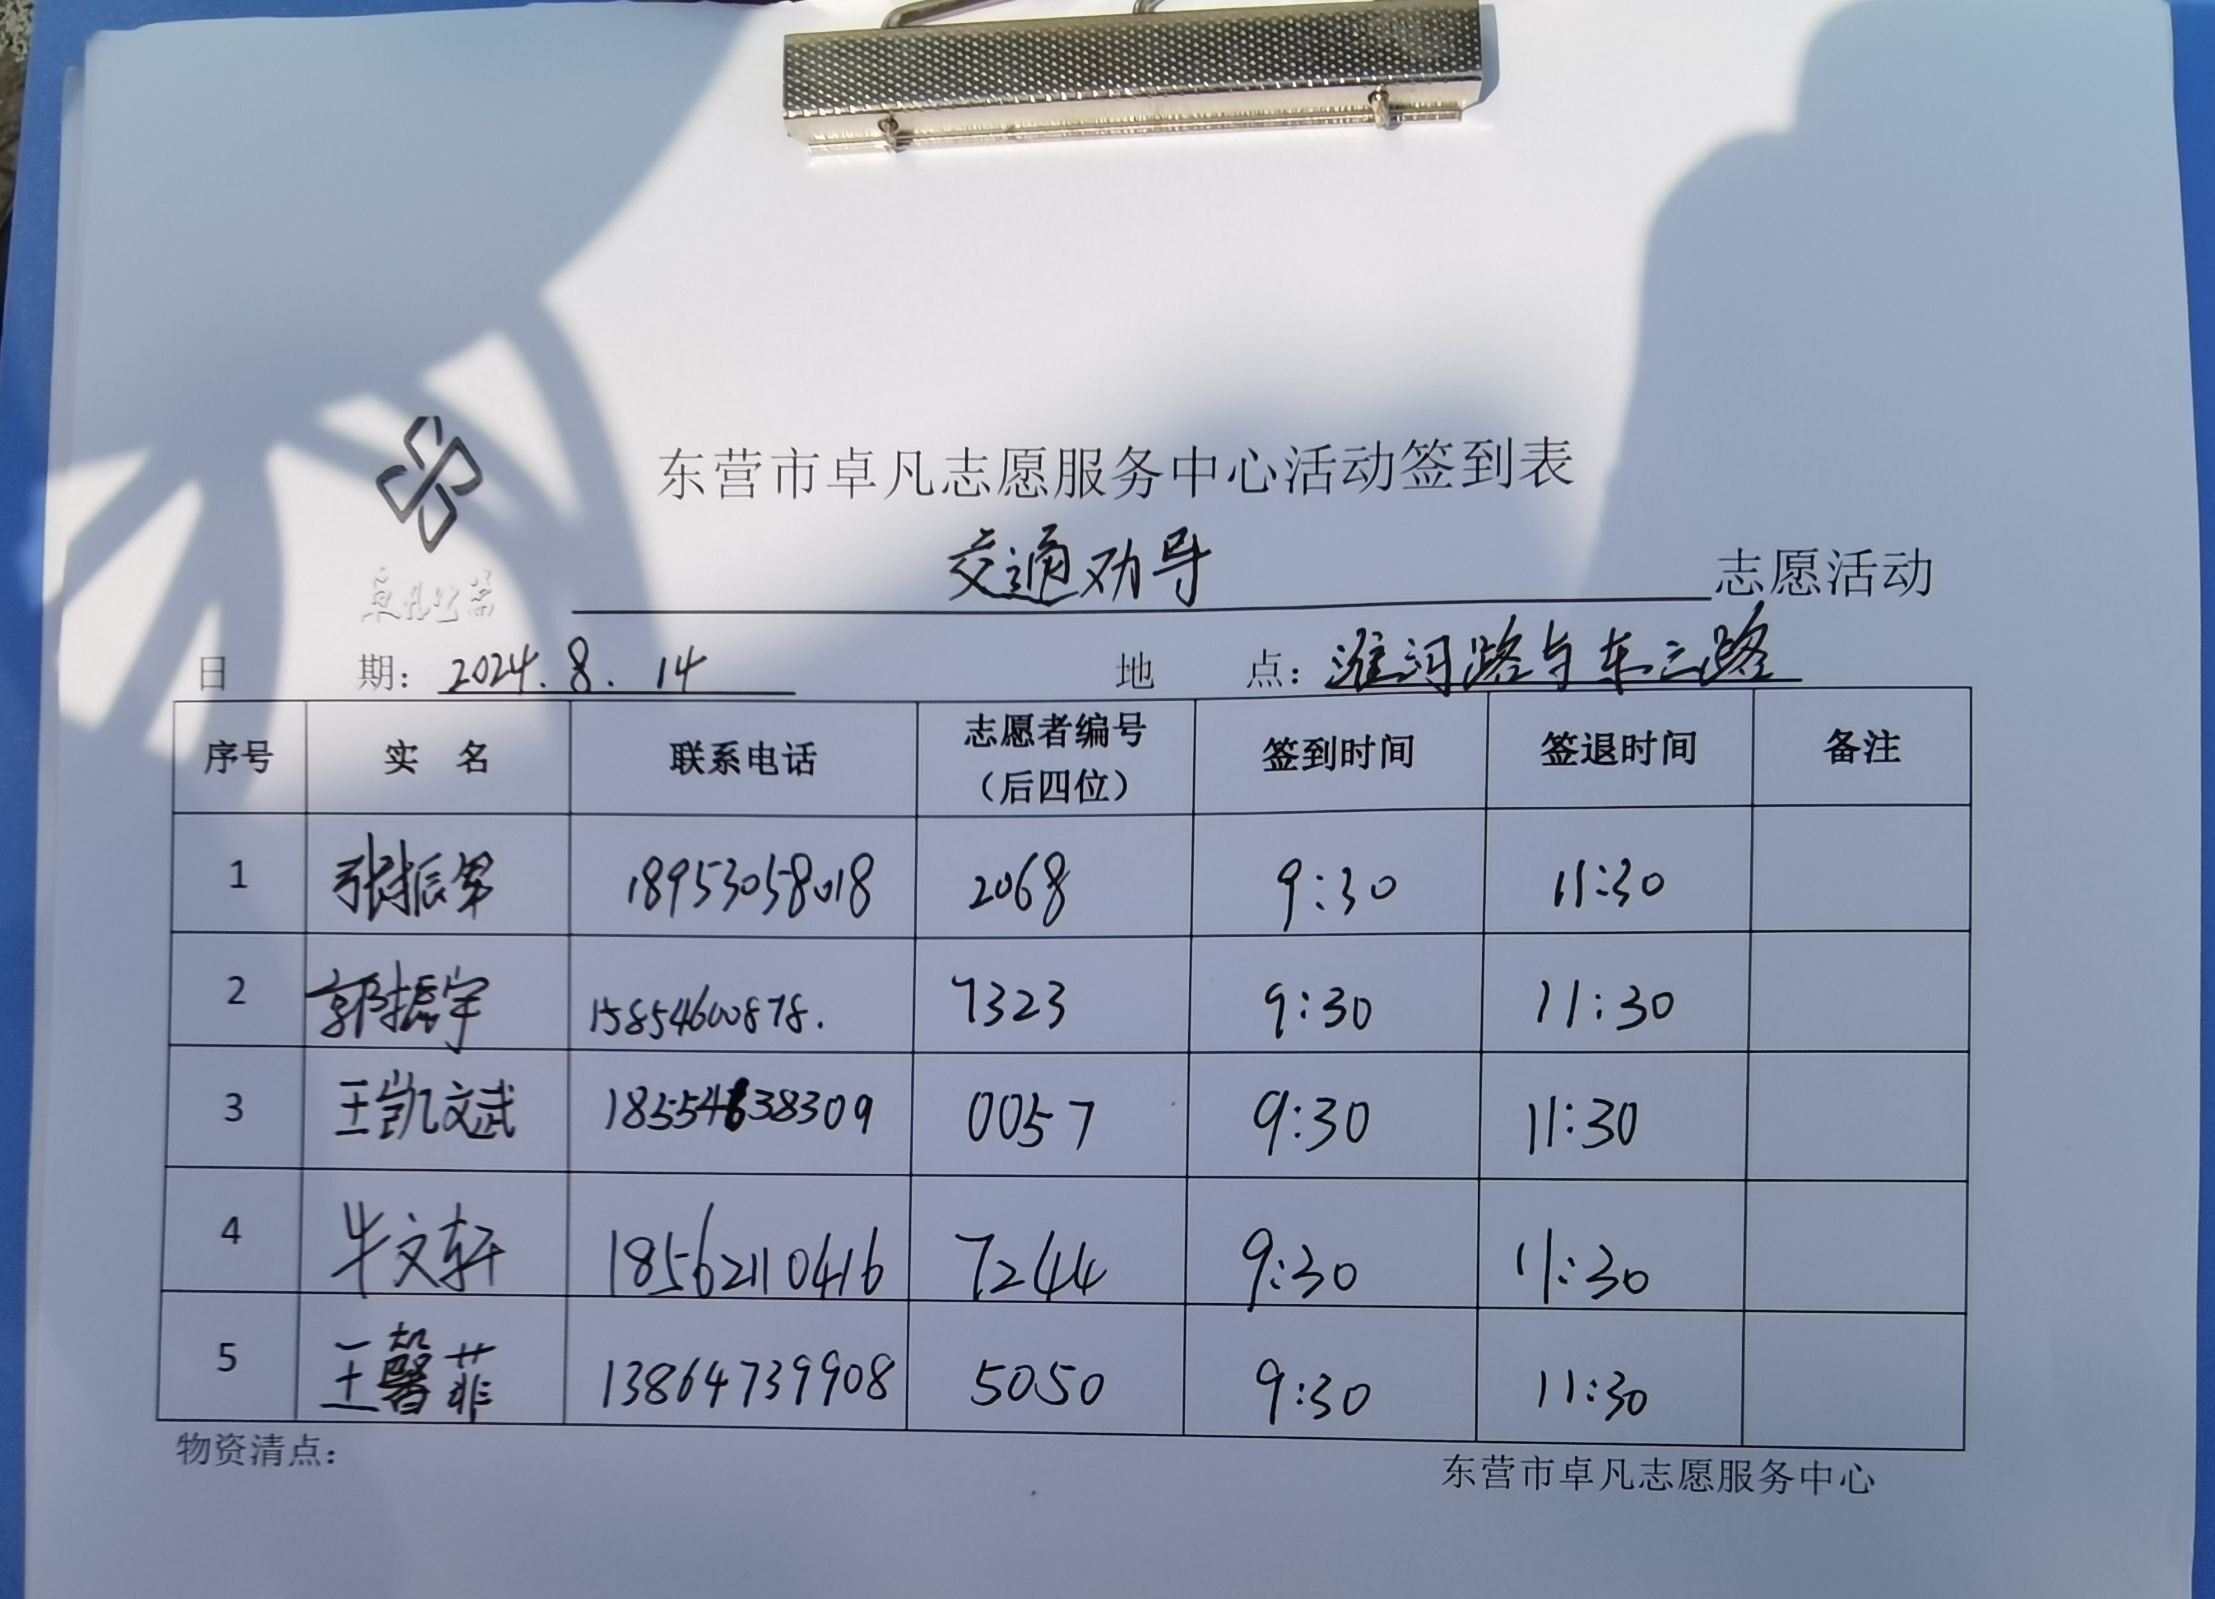 东营市卓凡志愿服务中心活动签到表
交通劝导 志愿活动
卓凡公益
日 期: 2024.8.14 地 点: 淮河路与东三路
序号 实 名 联系电话 志愿者编号（后四位） 签到时间 签退时间 备注
1 张振军 18953058018 2068 9:30 11:30
2 郭振宇 15854600878. 7323 9:30 11:30
3 王凯文武 18554638309 0057 9:30 11:30
4 牛文轩 18562110416 7244 9:30 11:30
5 王馨菲 13864739908 5050 9:30 11:30
物资清点: 东营市卓凡志愿服务中心